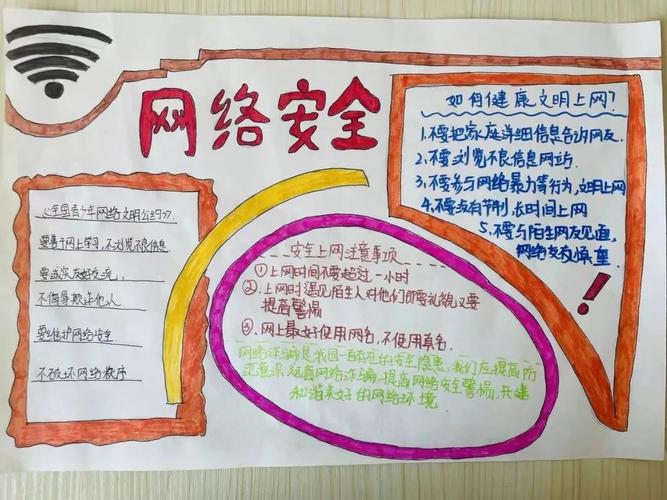 网络安全
如何健康文明上网?
1.不要把家庭详细信息告诉网友.
2.不要浏览不良信息网站.
3.不要参与网络暴力等行为,文明上网
4.不要没有节制,长时间上网
5.不要与陌生网友见面,
网络交友慎重
!
《全国青少年网络文明公约》
要善于网上学习,不浏览不良信息
要诚实友好交流,
不侮辱欺诈他人
要维护网络安全
不破坏网络秩序
安全上网注意事项
①上网时间不要超过一小时
②上网时遇见陌生人对他们即要礼貌又要
提高警惕
③网上最好使用网名,不使用真名.
网络诈骗是我国一直存在的安全隐患,我们应提高防
范意识,远离网络诈骗,提高网络安全警惕,共建
和谐美好的网络环境.